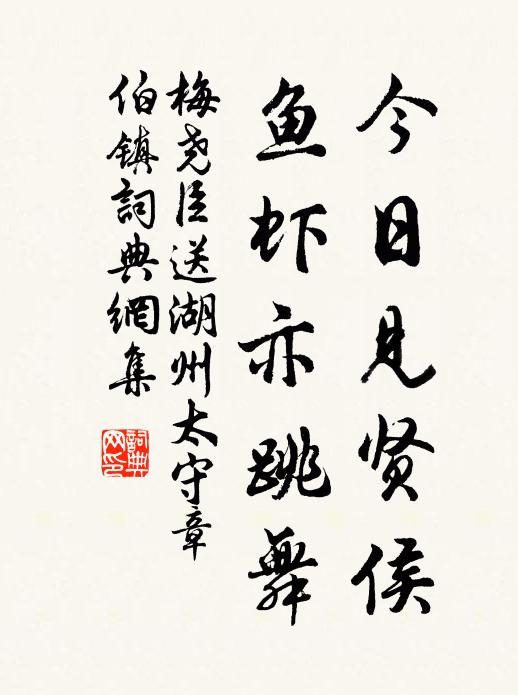 今日见贤侯
鱼虾亦跳舞
梅尧臣送湖州太守章
伯镇詞典網集
詞典
网印